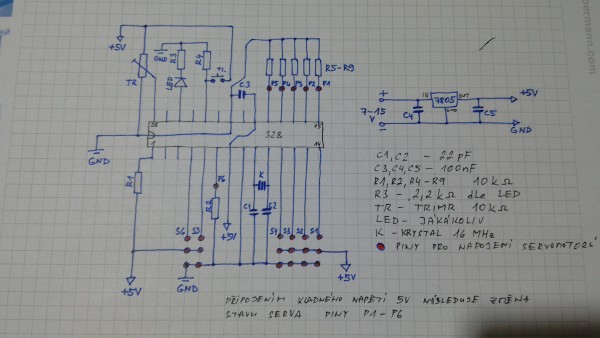 bermann.com
+5V
GND
R3
R4
LED
T1.
TR
C3
R5-R9
P5 P4 P3 P2 P1
28
15
328
14
GND
R1
P6
R2
+5V
K
C1 C2
S6 S5
S4 S3 S2 S1
+5V
GND
+5V
+
IN 7805 OUT
+5V
7-15
V
C4
GND
C5
GND
C1, C2 - 22pF
C3, C4, C5 - 100nF
R1, R2, R4-R9 10kΩ
R3 - 2,2kΩ dle LED
TR - TRIMR 10kΩ
LED - JAKÁKOLIV
K - KRYSTAL 16 MHz
PINY PRO NAPOJENÍ SERVOMOTORŮ
PŘIPOJENÍM KLADNÉHO NAPĚTÍ 5V NÁSLEDUJE ZMĚNA
STAVU SERVA PINY P1-P6